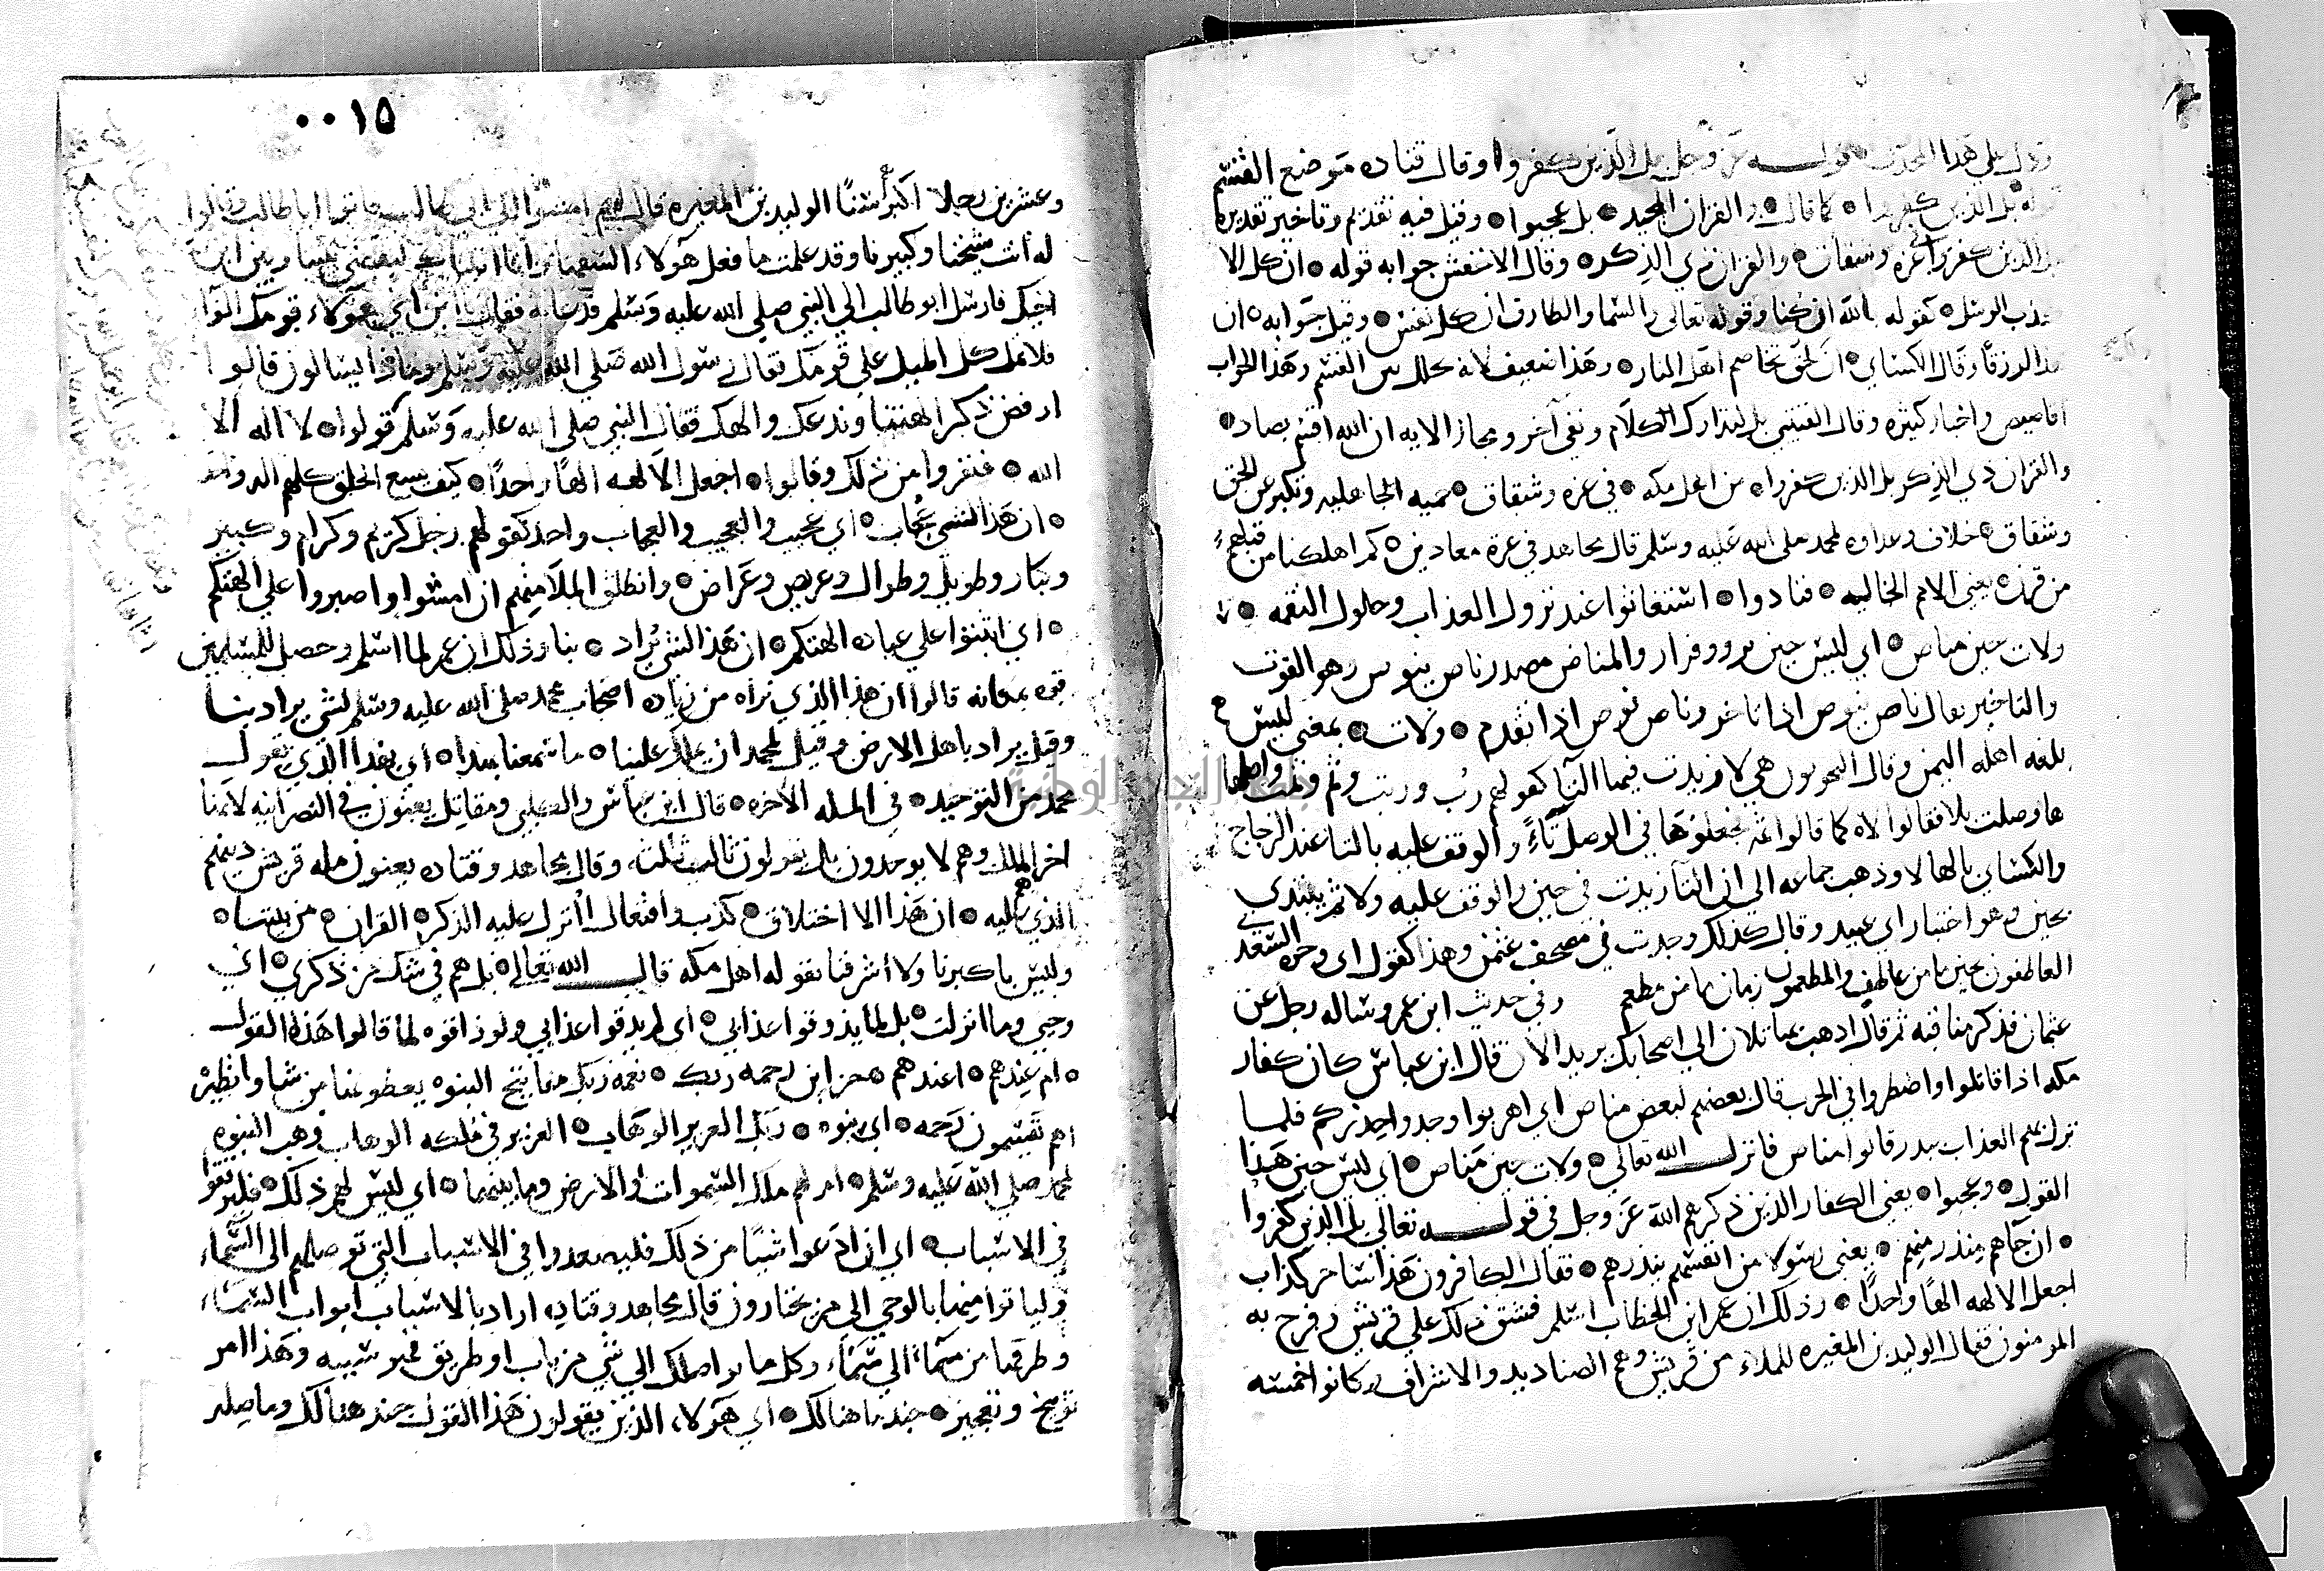 ودل على هذا المحذوف قوله عز وجل بل الذين كفروا وقال قتاده موضع القسم
قوله بل الذين كفروا كما قال والقران المجيد بل عجبوا وقيل فيه تقديم وتاخير تقديره
بل الذين كفروا في عزه وشقاق والقران ذي الذكر وقال الاخفش جوابه قوله ان كل الا
كذب الرسل كقوله تالله ان كنا وقوله تعالى والسما والطارق ان كل نفس وقيل جوابه ان
هذا لرزقنا وقال الكساي ان ذلك لحق تخاصم اهل النار وهذا ضعيف لانه تخلل بين القسم وهذا الجواب
اقاصيص واخبار كثيره وقال القتيبي بل لتدارك الكلام ونفي آخر ومجاز الايه ان الله اقسم بصاد
والقران ذي الذكر بل الذين كفروا من اهل مكه في عزه وشقاق حميه الجاهليه وتكبر عن الحق
وشقاق خلاف وعداوه لمحمد صلى الله عليه وسلم قال مجاهد في عزة معازين كم اهلكنا من قبلهم
من قرن يعني الامم الخاليه فنادوا استغاثوا عند نزول العذاب وحلول النقمه
ولات حين مناص اي ليس حين نزو وفرار والمناص مصدر ناص ينوص وهو الفوت
والتاخير يقال ناص ينوص اذا تاخر وناص نوص اذا تقدم ولات بمعنى ليس
بلغه اهل اليمن وقال النحويون هي لا زيدت فيها التا كقولهم رب وربت وثم وثمت واصلها
ها وصلت بلا فقالوا لاه كما قالوا ثمه فجعلوها في الوصل تاءً والوقف عليه بالتا عند الزجاج
والكساي بالها لاه وذهب جماعه الى ان التا زيدت في حين والوقف عليه ولا ثم يبتدي
بحين وهو اختيار ابي عبيد وقال كذلك وجدت في مصحف عثمن وهذا كقول ابي وجزة السعدي
العاطفون حين ما من عاطف والمطعمون زمان ما من مطعم وفي حديث ابن عمر وساله رجل عن
عثمان فذكر مناقبه ثم قال اذهب بها تلان الى اصحابك يريد الان قال ابن عباس كان كفار
مكه اذا قاتلوا واضطروا في الحرب قال بعضهم لبعض مناص اي اهربوا وخذوا حذركم فلما
نزل بهم العذاب ببدر قالوا مناص فانزل الله تعالى ولات حين مناص اي ليس حين هذا
القول وعجبوا يعني الكفار الذين ذكرهم الله عز وجل في قوله تعالى بل الذين كفروا
ان جاهم منذر منهم يعني رسولا من انفسهم ينذرهم فقال الكافرون هذا ساحر كذاب
اجعل الالهه الها واحدًا وذلك ان عمر ابن الخطاب اسلم فشق ذلك على قريش وفرح به
المومنون فقال الوليد بن المغيره للملاء من قريش وهم الصناديد والاشراف وكانوا خمسه
٠٠١٥
وعشرين رجلا اكبرهم سنًا الوليد بن المغيره قال لهم امشوا الى ابي طالب فاتوا ابا طالب فقالوا
له انت شيخنا وكبيرنا وقد علمت ما فعل هولاء السفها وانا اتيناك لتقضي بيننا وبين ابن
اخيك فارسل ابو طالب الى النبي صلى الله عليه وسلم فدعاه فقال يا ابن اخي هولاء قومك
فلا تمل كل الميل على قومك فقال رسول الله صلى الله عليه وسلم وماذا يسالون قالوا
ارفض ذكر الهتنا وندعك والهك فقال النبي صلى الله عليه وسلم قولوا لا اله الا
الله فنفروا من ذلك وقالوا اجعل الالهه الها واحدًا كيف يسع الخلق كلهم اله واحد
ان هذا لشي عجاب اي عجيب والعجيب والعجاب واحد كقولهم رجل كريم وكرام وكبير
وكبار وطويل وطوال وعريض وعراض وانطلق الملا منهم ان امشوا واصبروا على الهتكم
اي اثبتوا على عباده الهتكم ان هذا لشي يراد بنا وذلك ان عمر لما اسلم وحصل للمسلمين
قوه بمكانه قالوا ان هذا الذي نراه من زياده اصحاب محمد صلى الله عليه وسلم لشي يراد بنا
وقيل يراد باهل الارض وقيل لمحمد ان يملك علينا ما سمعنا بهذا اي بهذا الذي يقول
محمد من التوحيد في المله الاخره قال ابن عباس والكلبي ومقاتل يعنون في النصرانيه لانها
اخر الملل وهم لا يوحدون بل يقولون ثالث ثلثه وقال مجاهد وقتاده يعنون مله قريش دينهم
الذي هم عليه ان هذا الا اختلاق كذب وافتعال اانزل عليه الذكر القران من بيننا
وليس باكبرنا ولا اشرفنا يقوله اهل مكه قال الله تعالى بل هم في شك من ذكري اي
وحيي وما انزلت بل لما يذوقوا عذابي اي لم يذوقوا عذابي ولو ذاقوه لما قالوا هذا القول
ام عندهم اعندهم خزاين رحمه ربك نعمه ربك مفاتيح النبوه يعطونها من شاوا نظيره
اهم يقسمون رحمه ربك اي نبوه ربك العزيز الوهاب العزيز في ملكه الوهاب وهب النبوه
لمحمد صلى الله عليه وسلم ام لهم ملك السموات والارض وما بينهما اي ليس لهم ذلك فليرتقوا
في الاسباب اي ان ادعوا شيًا من ذلك فليصعدوا في الاسباب التي توصلهم الى السماء
وليا توا منها بالوحي الى من يختارون قال مجاهد وقتاده اراد بالاسباب ابواب السماء
وطرقها من سماء الى سماء وكل ما يوصلك الى شي من باب او طريق فهو سببه وهذا امر
توبيخ وتعجيز جند ما هنالك اي هولاء الذين يقولون هذا القول جند هنالك وما صله